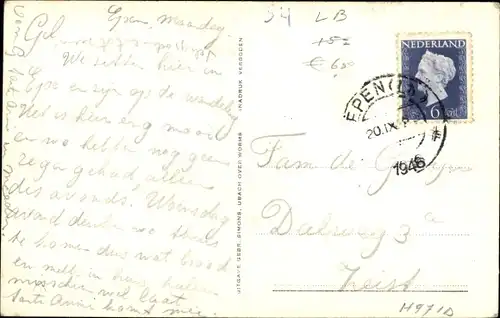 Epen, Maandag.
We zitten hier in
Epen en zijn op de wandeling
Het is hier erg mooi
en we hebben nog geen
regen gehad, alleen
dis avonds. Woensdag
avond denken we thuis
te komen dus wat brood
en melk in huis
misschien wel laat
tante Annie komt mee.
NADRUK VERBODEN
UITGAVE GEBR. SIMONS, UBACH OVER WORMS
54 LB
€ 6,50
NEDERLAND
6
EPEN (L.)
20.IX
1948
Fam de
Dalweg 3a
Zeist
H971D